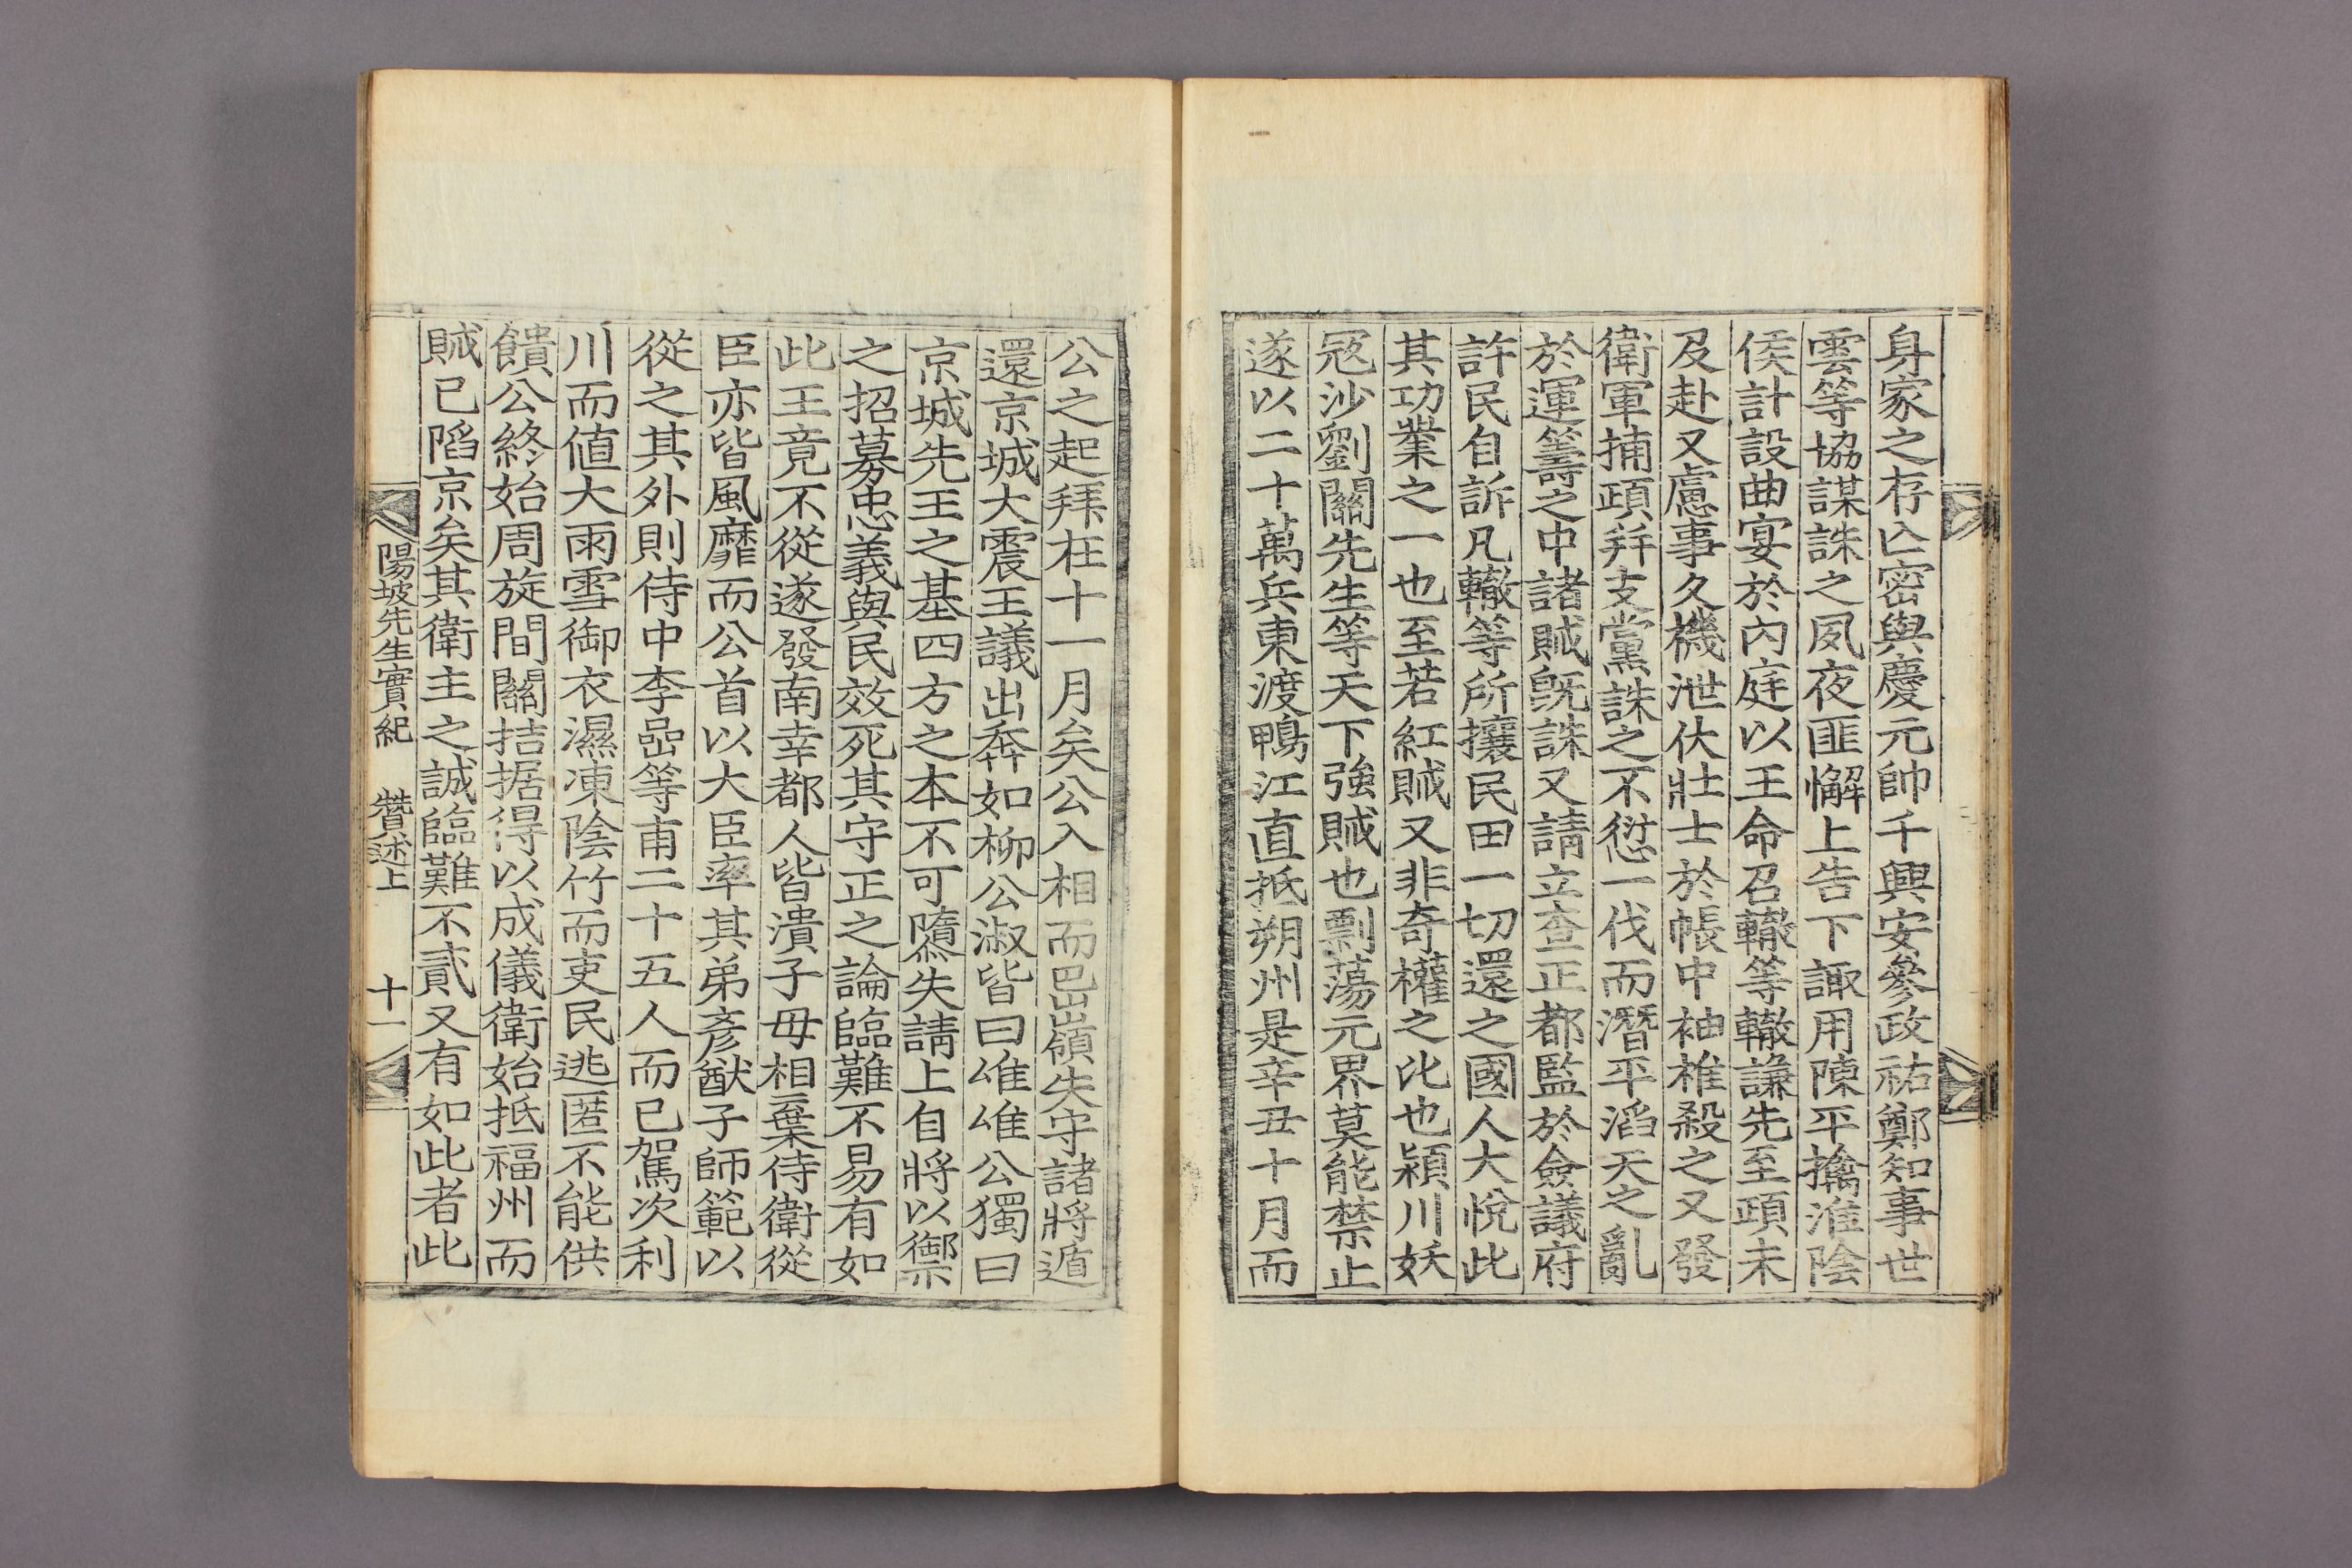 身家之存亾密與慶元帥千興安參政祐鄭知事世
雲等協謀誅之夙夜匪懈上告下諏用陳平擒淮陰
侯計設曲宴於內庭以王命召轍等轍謙先至頙未
及赴又慮事久機泄伏壯士於帳中袖椎殺之又發
衛軍捕頙并支黨誅之不愆一伐而潛平滔天之亂
於運籌之中諸賊旣誅又請立查正都監於僉議府
許民自訴凡轍等所攘民田一切還之國人大悅此
其功業之一也至若紅賊又非奇權之比也潁川妖
冦沙劉關先生等天下強賊也剽蕩元界莫能禁止
遂以二十萬兵東渡鴨江直抵朔州是辛丑十月而
公之起拜在十一月矣公入相而岊嶺失守諸將遁
還京城大震王議出奔如柳公淑皆曰唯唯公獨曰
京城先王之基四方之本不可隳失請上自將以禦
之招募忠義與民效死其守正之論臨難不易有如
此王竟不從遂發南幸都人皆潰子母相棄侍衛從
臣亦皆風靡而公首以大臣率其弟彥猷子師範以
從之其外則侍中李嵒等甫二十五人而已駕次利
川而値大雨雪御衣濕凍陰竹而吏民逃匿不能供
饋公終始周旋間關拮据得以成儀衛始抵福州而
賊已陷京矣其衛主之誠臨難不貳又有如此者此
陽坡先生實紀 贊述上 十一